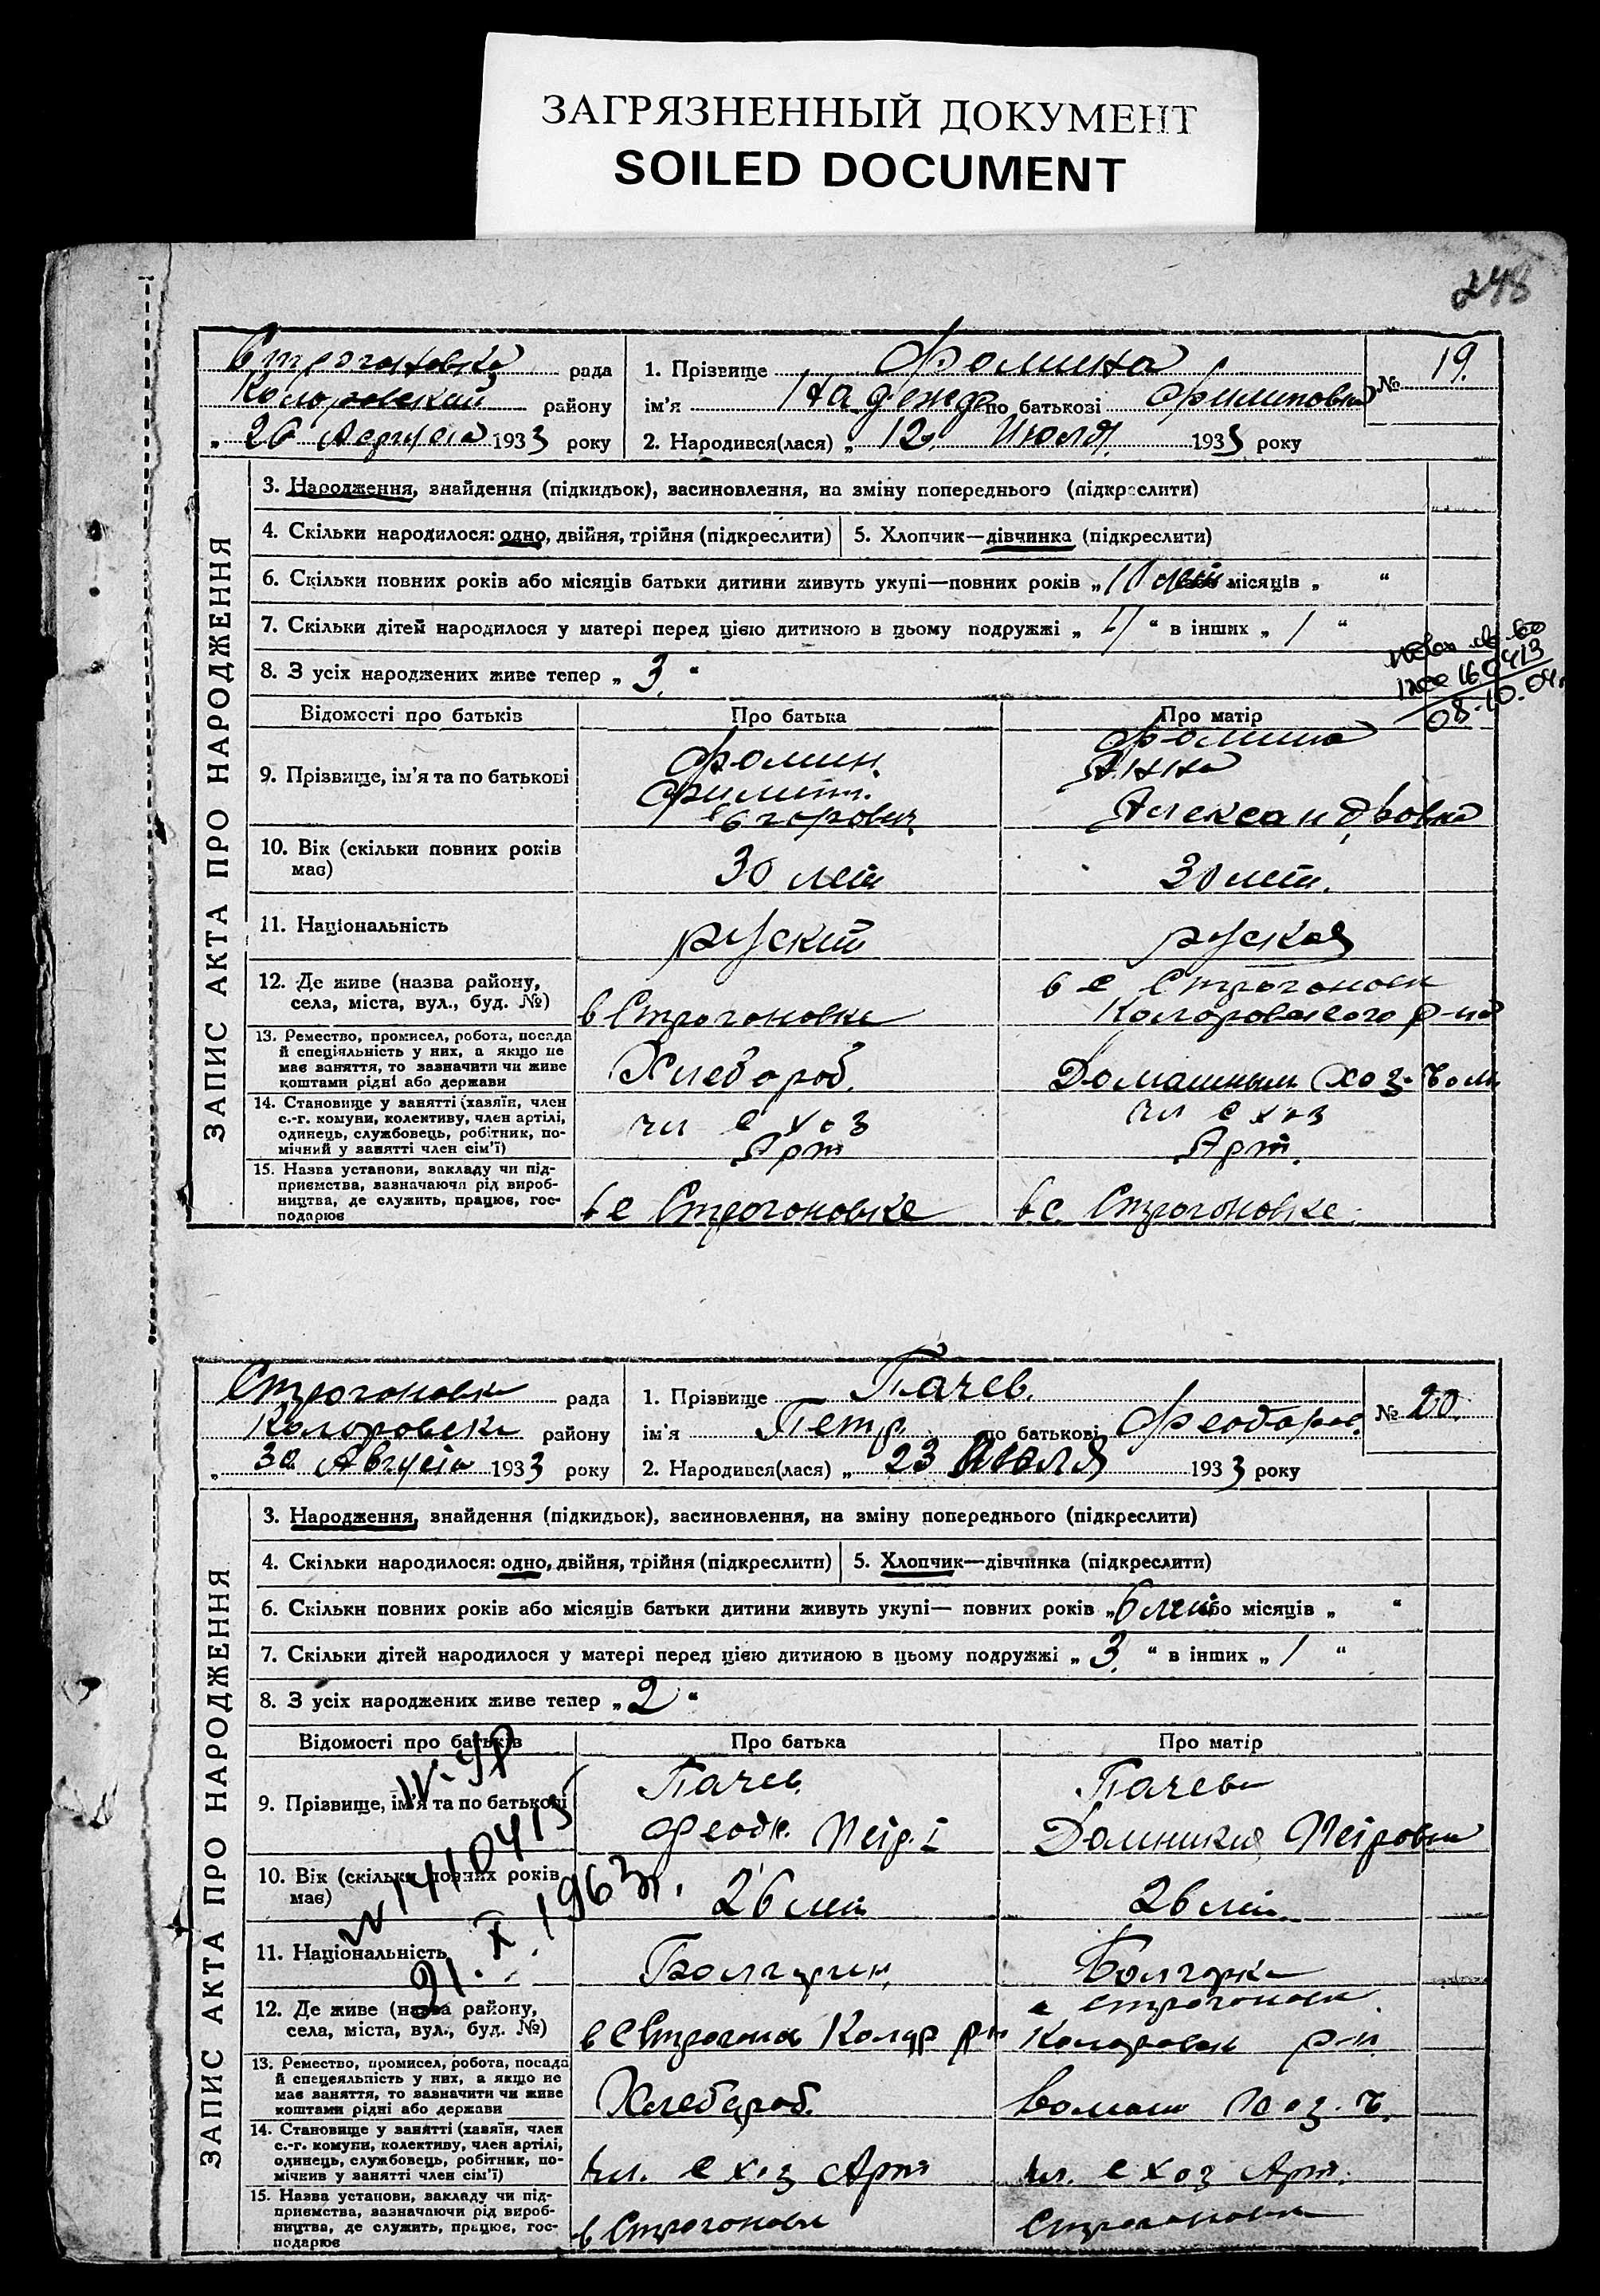 ЗАГРЯЗНЕННЫЙ ДОКУМЕНТ
SOILED DOCUMENT
248
ЗАПИС АКТА ПРО НАРОДЖЕННЯ
Строгановка рада
Коларовский району
„ 26 Августа 1933 року
1. Прізвище Фомина
ім'я Надежд по батькові Филиповна
№ 19.
2. Народився(лася) „ 12 Июля 1933 року
3. Народження, знайдення (підкидьок), засиновлення, на зміну попереднього (підкреслити)
4. Скільки народилося: одно, двійня, трійня (підкреслити) 5. Хлопчик—дівчинка (підкреслити)
6. Скільки повних років або місяців батьки дитини живуть укупі—повних років „ місяців „ “
7. Скільки дітей народилося у матері перед цією дитиною в цьому подружжі „ 4 “ в інших „ / “
8. З усіх народжених живе тепер „ 3. “
160413
08.10.04.
Відомості про батьків Про батька Про матір
9. Прізвище, ім'я та по батькові Фомин Филип. Егорович Фомина Анна Александровна
10. Вік (скільки повних років має) 30 лет 30 лет.
11. Національність руский руская
12. Де живе (назва району, села, міста, вул., буд. №) в Строгоновке в с Строгоновк Коларовского р-на
13. Ремество, промисел, робота, посада й спеціяльність у них, а якщо не має заняття, то зазначити чи живе коштами рідні або держави Хлебороб. Домашным хоз-вом
14. Становище у занятті (хазяїн, член с.-г. комуни, колективу, член артілі, одинець, службовець, робітник, помічний у занятті член сім'ї) чл с хоз Арт чл с хоз Арт.
15. Назва установи, закладу чи підприємства, зазначаючи рід виробництва, де служить, працює, господарює в с Строгоновке в с. Строгоновке
ЗАПИС АКТА ПРО НАРОДЖЕННЯ
Строгоновк рада
Коларовск району
„ 30 Августа 1933 року
1. Прізвище Пачев.
ім'я Петр. по батькові Феодоров.
№ 20.
2. Народився(лася) „ 23 Июля 1933 року
3. Народження, знайдення (підкидьок), засиновлення, на зміну попереднього (підкреслити)
4. Скільки народилося: одно, двійня, трійня (підкреслити) 5. Хлопчик—дівчинка (підкреслити)
6. Скільки повних років або місяців батьки дитини живуть укупі— повних років „ 6 лет або місяців „ “
7. Скільки дітей народилося у матері перед цією дитиною в цьому подружжі „ 3. “ в інших „ / “
8. З усіх народжених живе тепер „ 2 “
Відомості про батьків Про батька Про матір
9. Прізвище, ім'я та по батькові Пачев Феод. Петр. Пачева Домникия Петровна
10. Вік (скільки повних років має) 26 лет 26 лет
21. X. 1963г.
11. Національність Болгарин Болгарка
12. Де живе (назва району, села, міста, вул., буд. №) в с Строгонов Колар р-н с Строгоновк Коларовск р-н
13. Ремество, промисел, робота, посада й спецеяльність у них, а якщо не має заняття, то зазначити чи живе коштами рідні або держави Хлебороб. Домаш хоз. в.
14. Становище у занятті (хазяїн, член с.-г. комуни, колективу, член артілі, одинець, службовець, робітник, помічнив у занятті член сім'ї) чл. с хоз Арт чл. с хоз Арт.
15. Назва установи, закладу чи підприємства, зазначаючи рід виробництва, де служить, працює, господарює в Строгоновк Строгоновк